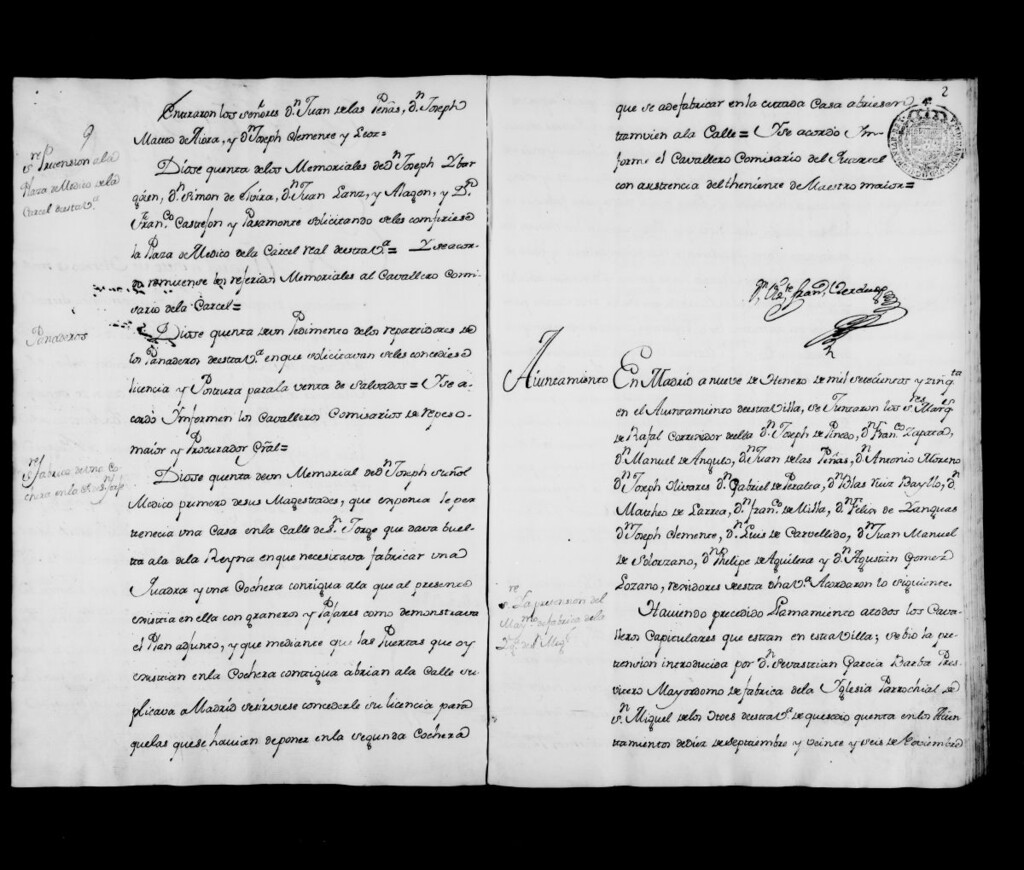 9
Entraron los señores Dn Juan de las Peñas, Dn Joseph
Matteo de Aiora, y Dn Joseph Clemente y Leor=
sre Pretension a la
Plaza de Medico de la
Carcel desta Va
Diose quenta de los Memoriales de Dn Joseph Ybar
goien, Dn Simon de Eloira, Dn Juan Lanz, y Alagon, y Dn
Franco Castrejon y Pasamonte solicitando se les comfiriese
la Plaza de Medico de la Carcel real desta Va= Y se acor-
do remitense los referidos Memoriales al Cavallero Comi-
sario de la Carcel=
Panaderos
Diose quenta de un Pedimento de los repartidores de
los Panaderos desta Va en que solicitavan se les concediese
licencia y Postura para la venta de salvados= Y se a-
cordo Ymformen los Cavalleros Comisarios de repeso
maior y Procurador Gral=
sre fabrica de una Co-
chera en la Calle Sn Jorje
Diose quenta de un Memorial de Dn Joseph suñol
Medico primero de sus Magestades, que exponia le per
tenecia una Casa en la Calle de Sn Jorge que dava buel-
ta a la de la Reyna en que necesitava fabricar una
Quadra y una Cochera contigua a la que al presente
existia en ella con granero y Pajares como demonstrava
el Plan adjunto, y que mediante que las Puertas que oy
existian en la Cochera contigua abrian a la Calle su-
plicava a Madrid se sirviese concederle su licencia para
que las que se havian de poner en la segunda Cochera
2
que se a de fabricar en la cittada Casa abriesen
tramvien a la Calle= Y se acordo Ym-
forme el Cavallero Comisario del Quartel
con asistencia del theniente de Maestro maior=
Aiuntamiento
En Madrid a nueve de Henero de mil setecientos y zinqta
en el Aiuntamiento desta Villa, se Juntaron los sres Marqs
de Rafal Corregidor de ella Dn Joseph de Pinedo, Dn Franco Zapata,
Dn Manuel de Angulo, Dn Juan de las Peñas, Dn Antonio Moreno
Dn Joseph Olivares Dn Gabriel de Peralta, Dn Blas Ruiz Bayllo, Dn
Matheo de Larrea, Dn Franco de Milla, Dn Felix de Yanguas
Dn Joseph Clemente, Dn Luis de Carvellido, Dn Juan Manuel
de Solorzano, Dn Phelipe de Aguilera y Dn Agustin Gomez
Lozano, rexidores desta dha Va Acordaron lo siguiente.
sre La pretension del
Maymo de fabrica de la
Yga de Sn Migl
Haviendo precedido Llamamiento a todos los Cava-
lleros Capitulares que estan en esta Villa; se bio la pre
tension introducida por Dn Sevastian Garcia Barba Pres-
vitero Mayordomo de fabrica de la Yglesia Parrochial de
Sn Miguel de los Otoes desta Va de que se dio quenta en los Aiun
tamientos de diez de septiembre y veinte y seis de Noviembre